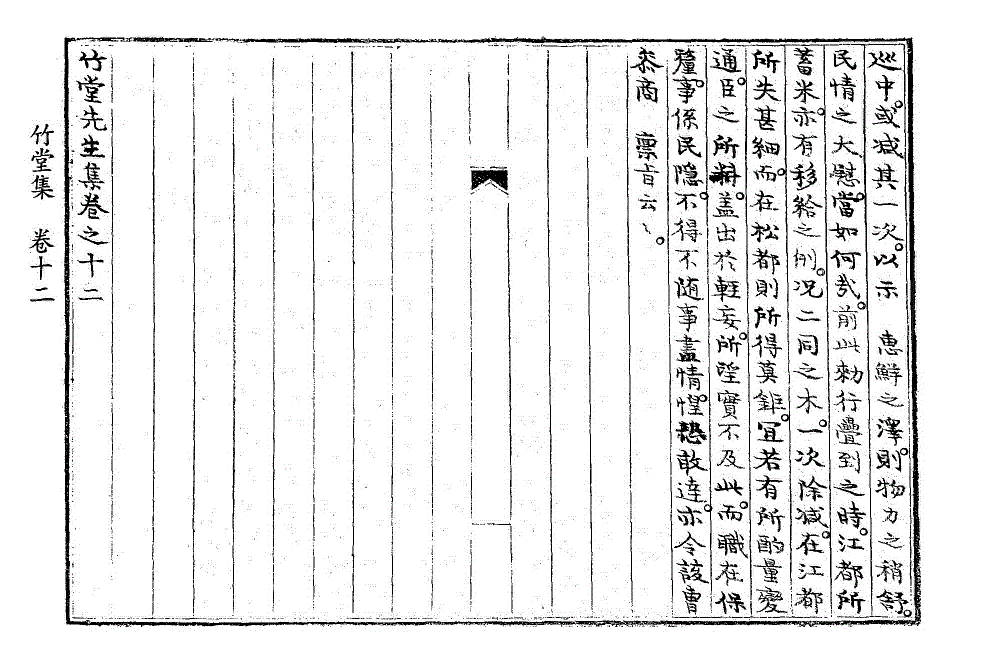 巡中。或減其一次。以示　惠鮮之澤。則物力之稍舒。
民情之大慰。當如何哉。前此勑行疊到之時。江都所
蓄米。亦有移給之例。况二同之木。一次除减。在江都
所失甚細。而在松都則所得莫錐。宜若有所酌量變
通。臣之所料。盖出於輕妄。所望實不及此。而職在保
釐。事係民隐。不得不随事盡情。惶恐敢達。亦令該曹
叅商　禀旨云〻。
竹堂先生集卷之十二
竹堂集　卷十二